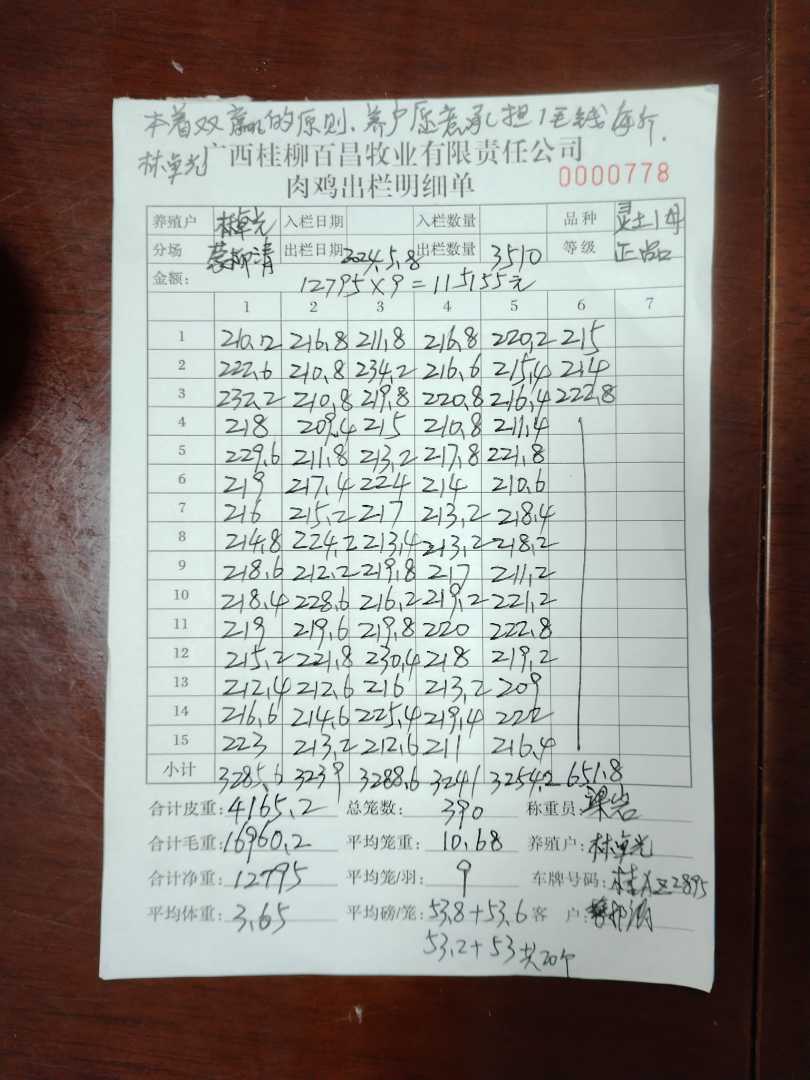 本着双赢的原则、养户愿意承担1毛钱每斤.
林卓光
广西桂柳百昌牧业有限责任公司
肉鸡出栏明细单 0000778
养殖户 林卓光 入栏日期 入栏数量 品种 灵土1母
分场 蒙柳清 出栏日期 2024.5.8 出栏数量 3510 等级 正品
金额: 12795×9=115155元
1 2 3 4 5 6 7
1 210.2 216.8 211.8 216.8 220.2 215
2 222.6 210.8 234.2 216.6 215.4 214
3 232.2 210.8 219.8 220.8 216.4 222.8
4 218 209.4 215 210.8 211.4
5 229.6 211.8 213.2 217.8 221.8
6 219 217.4 224 214 210.6
7 216 215.2 217 213.2 218.4
8 214.8 224.2 213.4 213.2 218.2
9 218.6 212.2 219.8 217 211.2
10 218.4 228.6 216.2 219.2 221.2
11 219 219.6 219.8 220 222.8
12 215.2 221.8 230.4 218 219.2
13 212.4 212.6 216 213.2 209
14 216.6 214.6 225.4 219.4 222
15 223 213.2 212.6 211 216.4
小计 3285.6 3239 3288.6 3241 3254.2 651.8
合计皮重: 4165.2 总笼数: 390 称重员: 梁岩
合计毛重: 16960.2 平均笼重: 10.68 养殖户: 林卓光
合计净重: 12795 平均笼/羽: 9 车牌号码: 桂AZ2895
平均体重: 3.65 平均磅/笼: 53.8+53.6 客 户:
53.2+53共20个